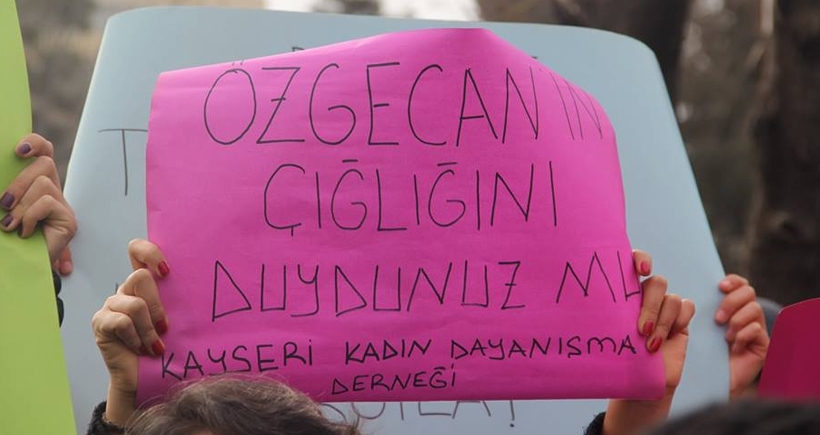 ÖZGECAN'IN
ÇIĞLIĞINI
DUYDUNUZ MU
KAYSERİ KADIN DAYANIŞMA
DERNEĞİ